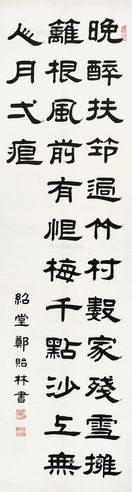 晚醉扶筇過竹村數家殘雪擁
籬根風前有恨梅千點沙上無
心月弌痕
紹堂鄭貽林書